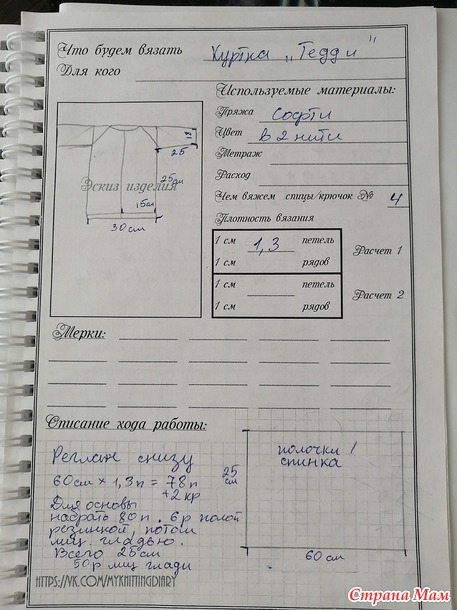 Что будем вязать Куртка „Тедди"
Для кого
Используемые материалы:
Пряжа Софти
Цвет в 2 нити
Метраж
Расход
Чем вяжем спицы/крючок № 4
Плотность вязания
1 см 1,3 петель
1 см рядов
Расчет 1
1 см петель
1 см рядов
Расчет 2
Эскиз изделия
13
25
25см
15см
30 см
Мерки:
Описание хода работы:
Реглан снизу
60 см × 1,3 п = 78 п
+2 кр
Для основы
набрать 80 п. 6 р полой
резинкой, потом
лиц. гладью.
Всего 25 см
50 р лиц глади
25 см
полочки /
спинка
60 см
HTTPS://VK.COM/MYKNITTINGDIARY
Страна Мам